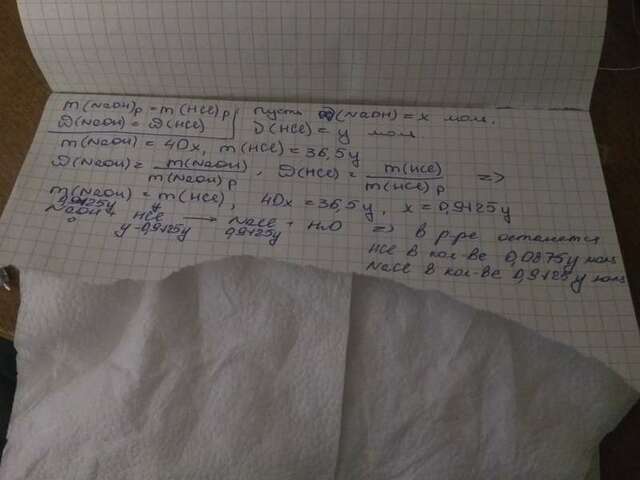 m(NaOH)р = m(HCl)р
ω(NaOH) = ω(HCl)
Пусть ν(NaOH) = x мол.
ν(HCl) = y мол.
m(NaOH) = 40x, m(HCl) = 36,5y
ω(NaOH) = m(NaOH)/m(NaOH)р, ω(HCl) = m(HCl)/m(HCl)р =>
m(NaOH) = m(HCl), 40x = 36,5y, x = 0,9125y
0,9125y y
NaOH + HCl → NaCl + H₂O => в р-ре останется
0 y-0,9125y 0,9125y
HCl в кол-ве 0,0875y моль
NaCl в кол-ве 0,9125y моль